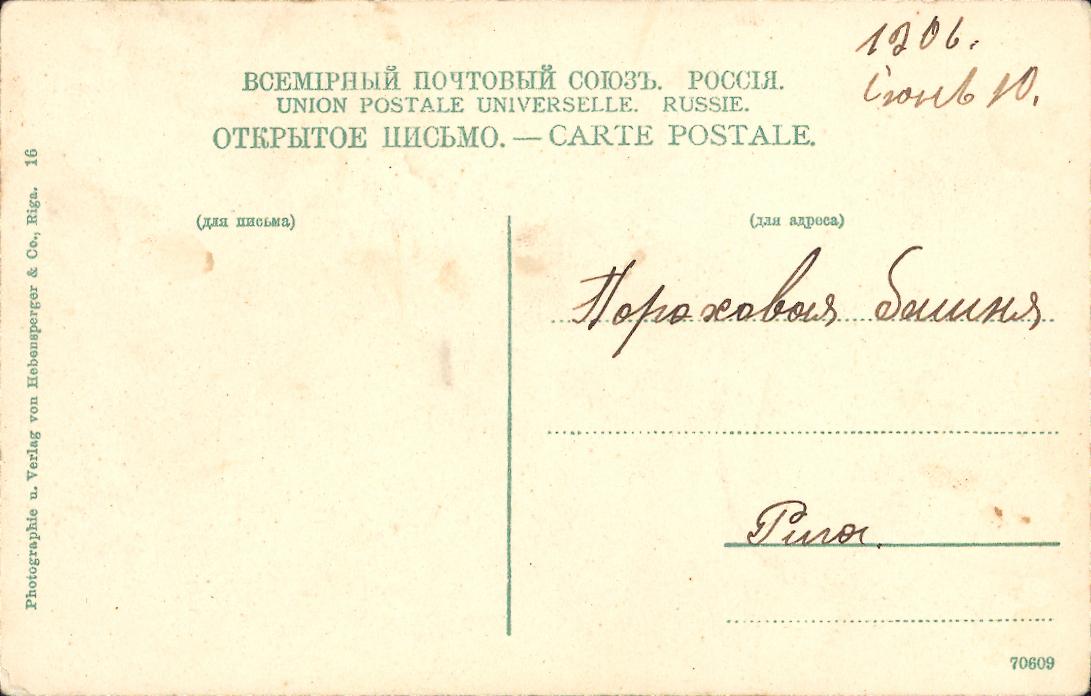 1906.
Июнь 10.
ВСЕМІРНЫЙ ПОЧТОВЫЙ СОЮЗЪ. РОССІЯ.
UNION POSTALE UNIVERSELLE. RUSSIE.
ОТКРЫТОЕ ПИСЬМО. — CARTE POSTALE.
(для письма)
(для адреса)
Пороховая башня
Рига.
70609
Photographie u. Verlag von Hebensperger & Co., Riga. 16